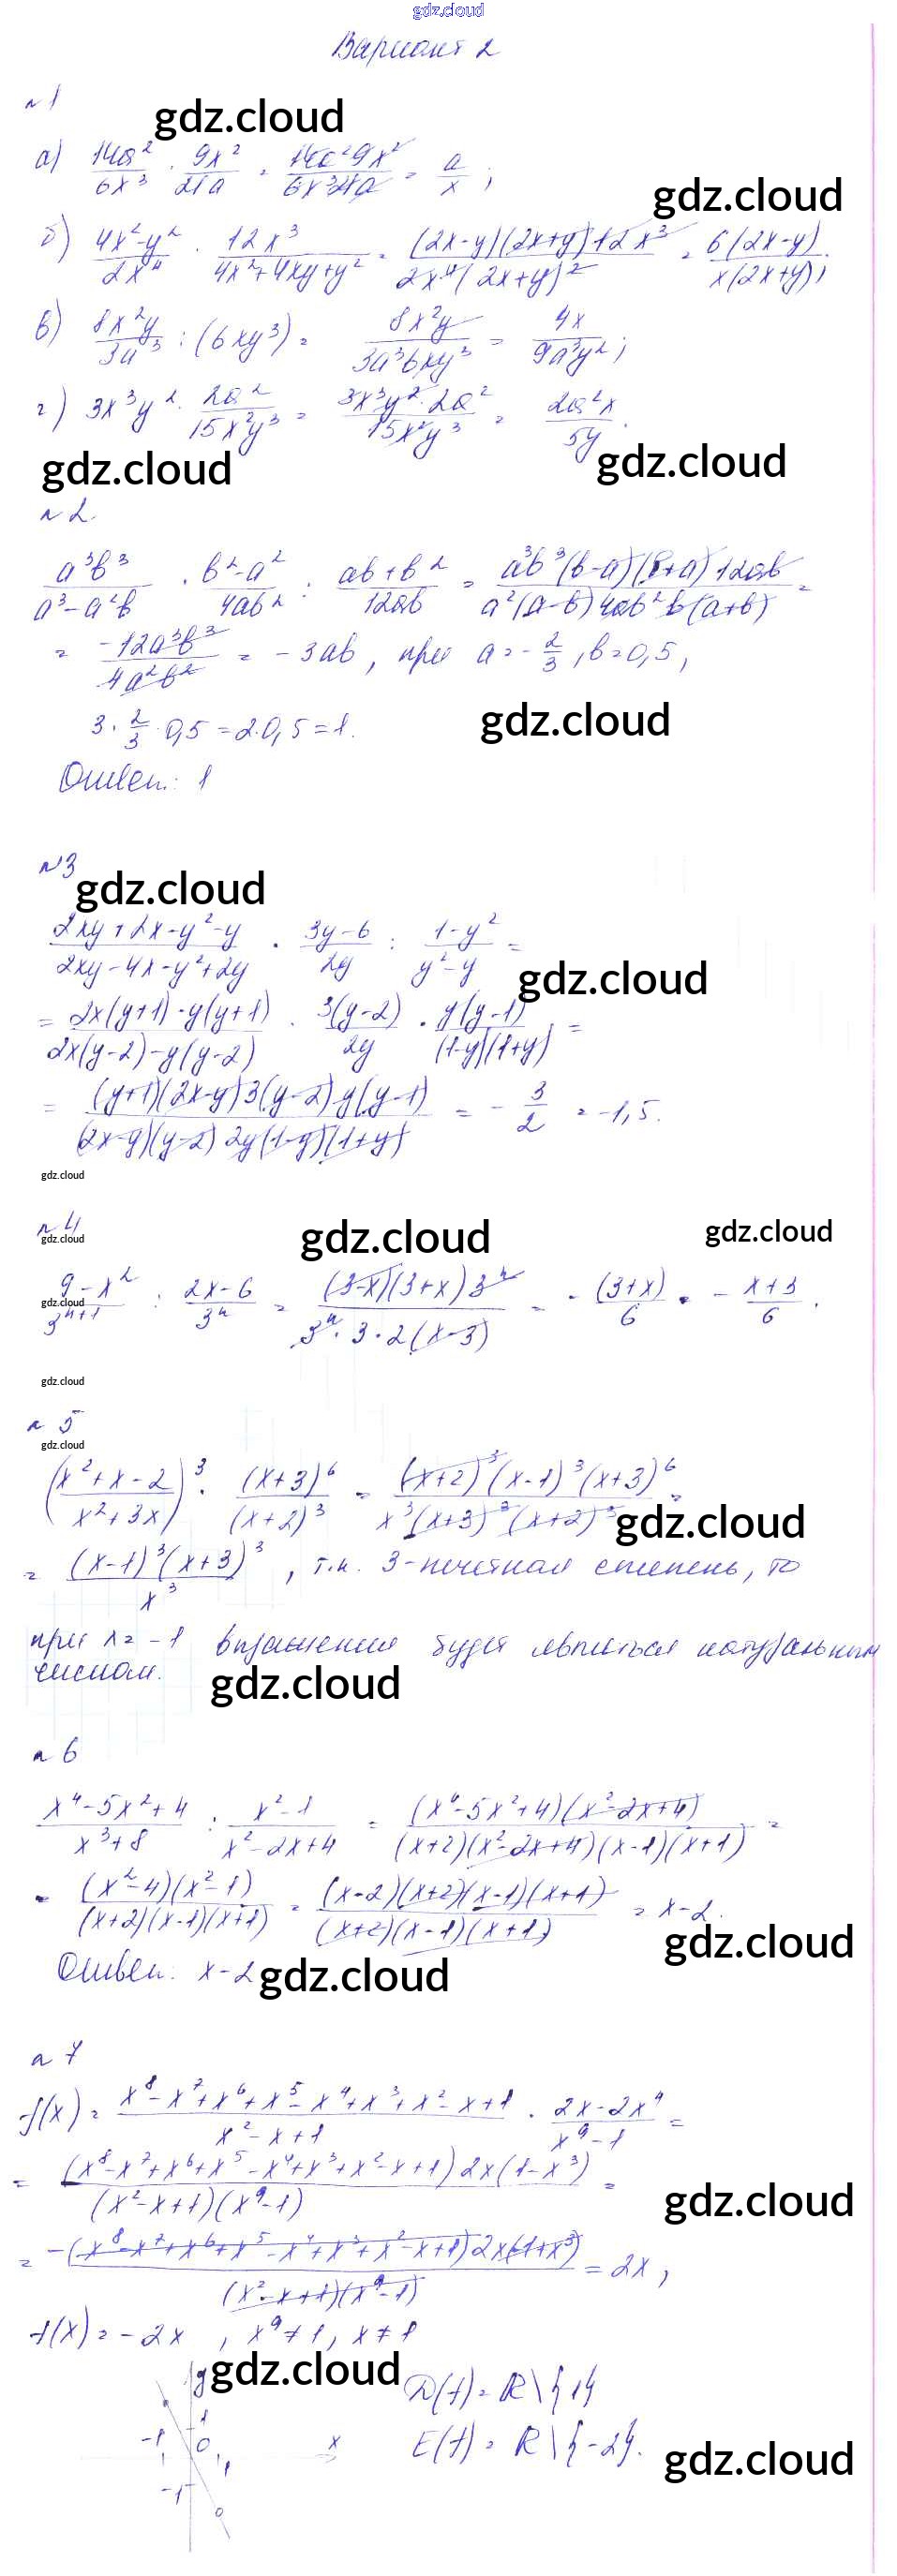 gdz.cloud
Вариант 2
№1
gdz.cloud
а) 14a²/6x³ · 9x²/21a = 14a²9x²/6x³21a = a/x ;
gdz.cloud
б) 4x²-y²/2x⁴ · 12x³/4x²+4xy+y² = (2x-y)(2x+y)12x³/2x⁴(2x+y)² = 6(2x-y)/x(2x+y);
в) 8x²y/3a³ : (6xy³) = 8x²y/3a³6xy³ = 4x/9a³y²;
г) 3x³y² · 2a²/15x²y³ = 3x³y²·2a²/15x²y³ = 2a²x/5y.
gdz.cloud gdz.cloud
№2.
a³b³/a³-a²b · b²-a²/4ab² : ab+b²/12ab = a³b³(b-a)(b+a)12ab/a²(a-b)4ab²b(a+b) =
= -12a³b³/4a²b² = -3ab, при a=-2/3, b=0,5,
3·2/3·0,5=2·0,5=1.
gdz.cloud
Ответ: 1
№3
gdz.cloud
2xy+2x-y²-y/2xy-4x-y²+2y · 3y-6/2y : 1-y²/y²-y =
gdz.cloud
= 2x(y+1)-y(y+1)/2x(y-2)-y(y-2) · 3(y-2)/2y · y(y-1)/(1-y)(1+y) =
= (y+1)(2x-y)3(y-2)y(y-1)/(2x-y)(y-2)2y(1-y)(1+y) = -3/2 = -1,5.
gdz.cloud
№4
gdz.cloud gdz.cloud gdz.cloud
9-x²/3ⁿ⁺¹ : 2x-6/3ⁿ = (3-x)(3+x)3ⁿ/3ⁿ·3·2(x-3) = -(3+x)/6 = -x+3/6.
gdz.cloud
gdz.cloud
№5
gdz.cloud
(x²+x-2/x²+3x)³ · (x+3)⁶/(x+2)³ = (x+2)³(x-1)³(x+3)⁶/x³(x+3)³(x+2)³ =
gdz.cloud
= (x-1)³(x+3)³/x³, т.к. 3-нечетная степень, то
при x=-1 выражения будет являться натуральным
числом.
gdz.cloud
№6
x⁴-5x²+4/x³+8 : x²-1/x²-2x+4 = (x⁴-5x²+4)(x²-2x+4)/(x+2)(x²-2x+4)(x-1)(x+1) =
= (x²-4)(x²-1)/(x+2)(x-1)(x+1) = (x-2)(x+2)(x-1)(x+1)/(x+2)(x-1)(x+1) = x-2.
gdz.cloud
Ответ: x-2
gdz.cloud
№7
f(x) = x⁸-x⁷+x⁶+x⁵-x⁴+x³+x²-x+1/x²-x+1 · 2x-2x⁴/x⁹-1 =
= (x⁸-x⁷+x⁶+x⁵-x⁴+x³+x²-x+1)2x(1-x³)/(x²-x+1)(x⁹-1) =
gdz.cloud
= -(x⁸-x⁷+x⁶+x⁵-x⁴+x³+x²-x+1)2x(-1+x³)/(x²-x+1)(x⁹-1) = 2x,
f(x)=-2x, x⁹≠1, x≠1
y gdz.cloud D(f)=R\{1}
E(f)=R\{-2}.
gdz.cloud
-1 1 0 1 x
-1